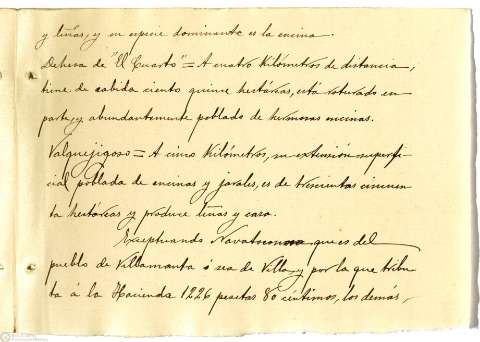 y leñas, y su especie dominante es la encina.
Dehesa de "El Cuarto" = A cuatro Kilómetros de distancia,
tiene de cabida ciento quince hectáreas, está roturado en
parte, y abundantemente poblado de hermosas encinas.
Valquejigoso = A cinco Kilómetros, su extensión superfi-
cial poblada de encinas y jarales, es de trescientas cincuen-
ta hectáreas y produce leñas y caza.
Exceptuando que es del
pueblo de Villamanta ó sea de Villa, y por la que tribu-
ta á la Hacienda 1226 pesetas 80 céntimos, los demás,